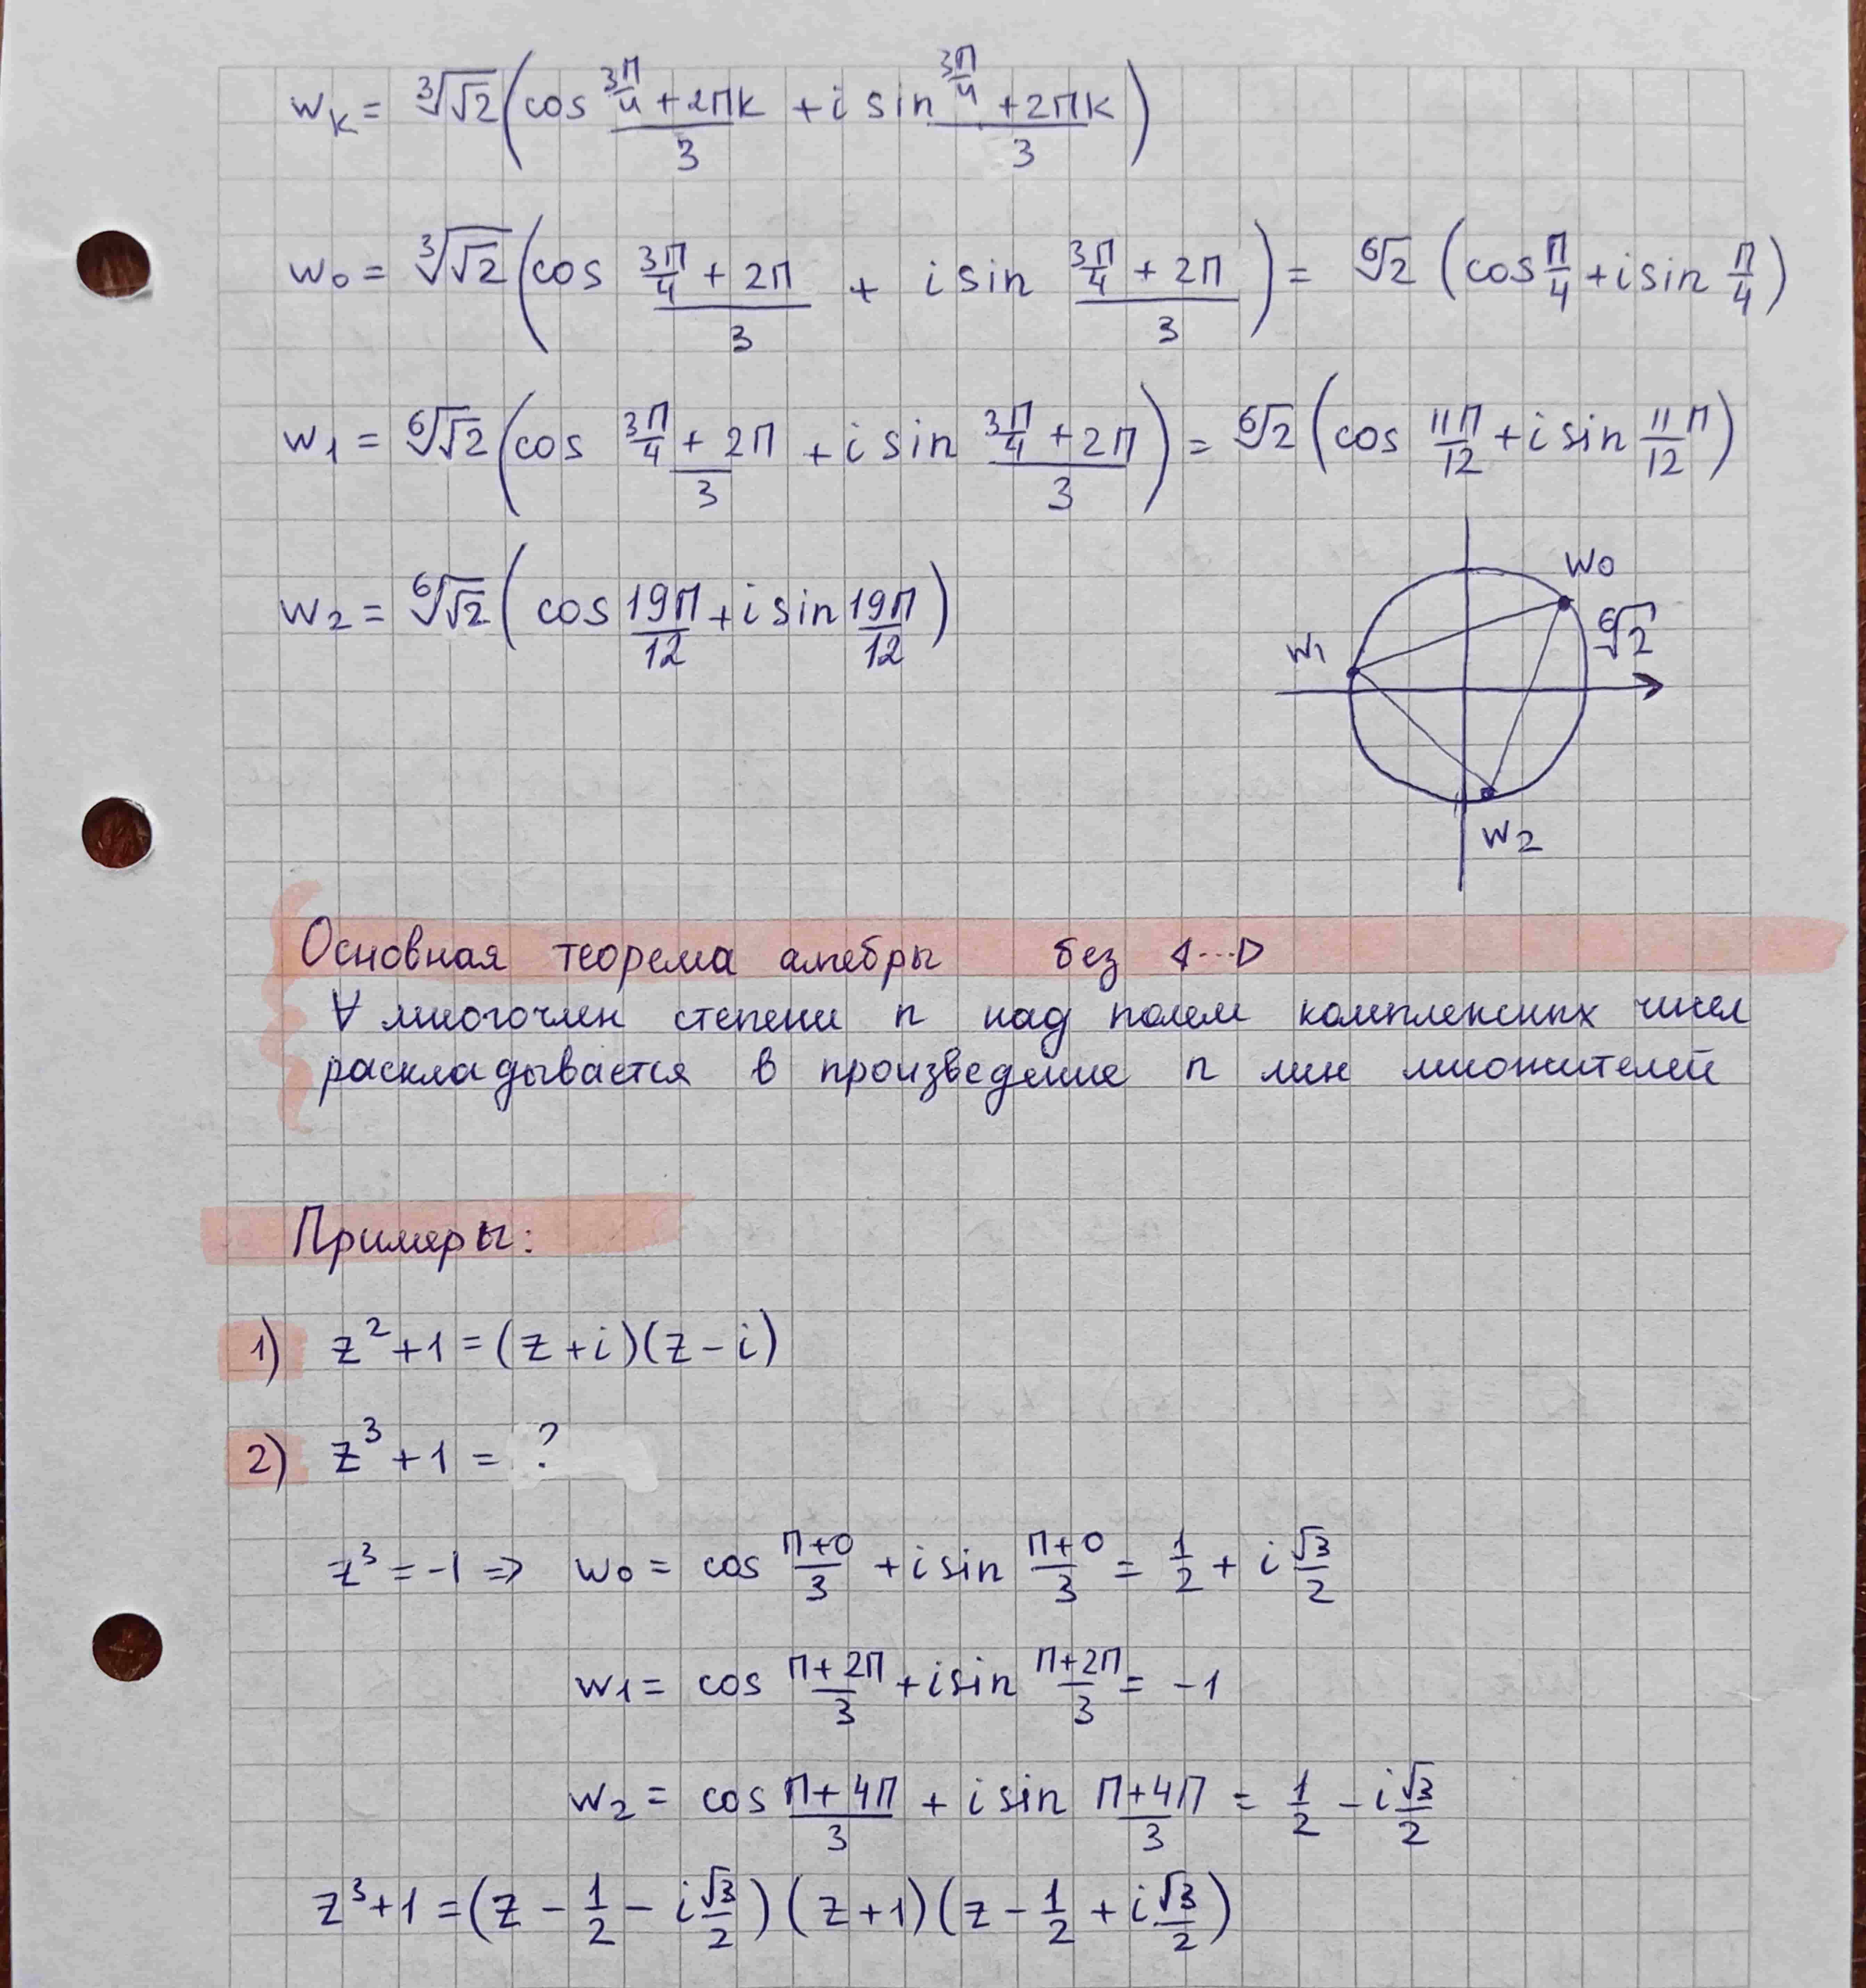 w_k = ∛√2 (cos (3π/4 + 2πk)/3 + i sin (3π/4 + 2πk)/3)
w_0 = ∛√2 (cos (3π/4 + 2π)/3 + i sin (3π/4 + 2π)/3) = ⁶√2 (cos π/4 + i sin π/4)
w_1 = ⁶√√2 (cos (3π/4 + 2π)/3 + i sin (3π/4 + 2π)/3) = ⁶√2 (cos 11π/12 + i sin 11π/12)
w_2 = ⁶√√2 (cos 19π/12 + i sin 19π/12)
w_0
⁶√2
w_1
w_2
Основная теорема алгебры без ⊲...⊳
∀ многочлен степени n над полем комплексных чисел
раскладывается в произведение n лин множителей
Примеры:
1) z² + 1 = (z + i)(z − i)
2) z³ + 1 = ?
z³ = −1 ⇒ w_0 = cos (π+0)/3 + i sin (π+0)/3 = 1/2 + i √3/2
w_1 = cos (π+2π)/3 + i sin (π+2π)/3 = −1
w_2 = cos (π+4π)/3 + i sin (π+4π)/3 = 1/2 − i √3/2
z³ + 1 = (z − 1/2 − i √3/2) (z + 1) (z − 1/2 + i √3/2)